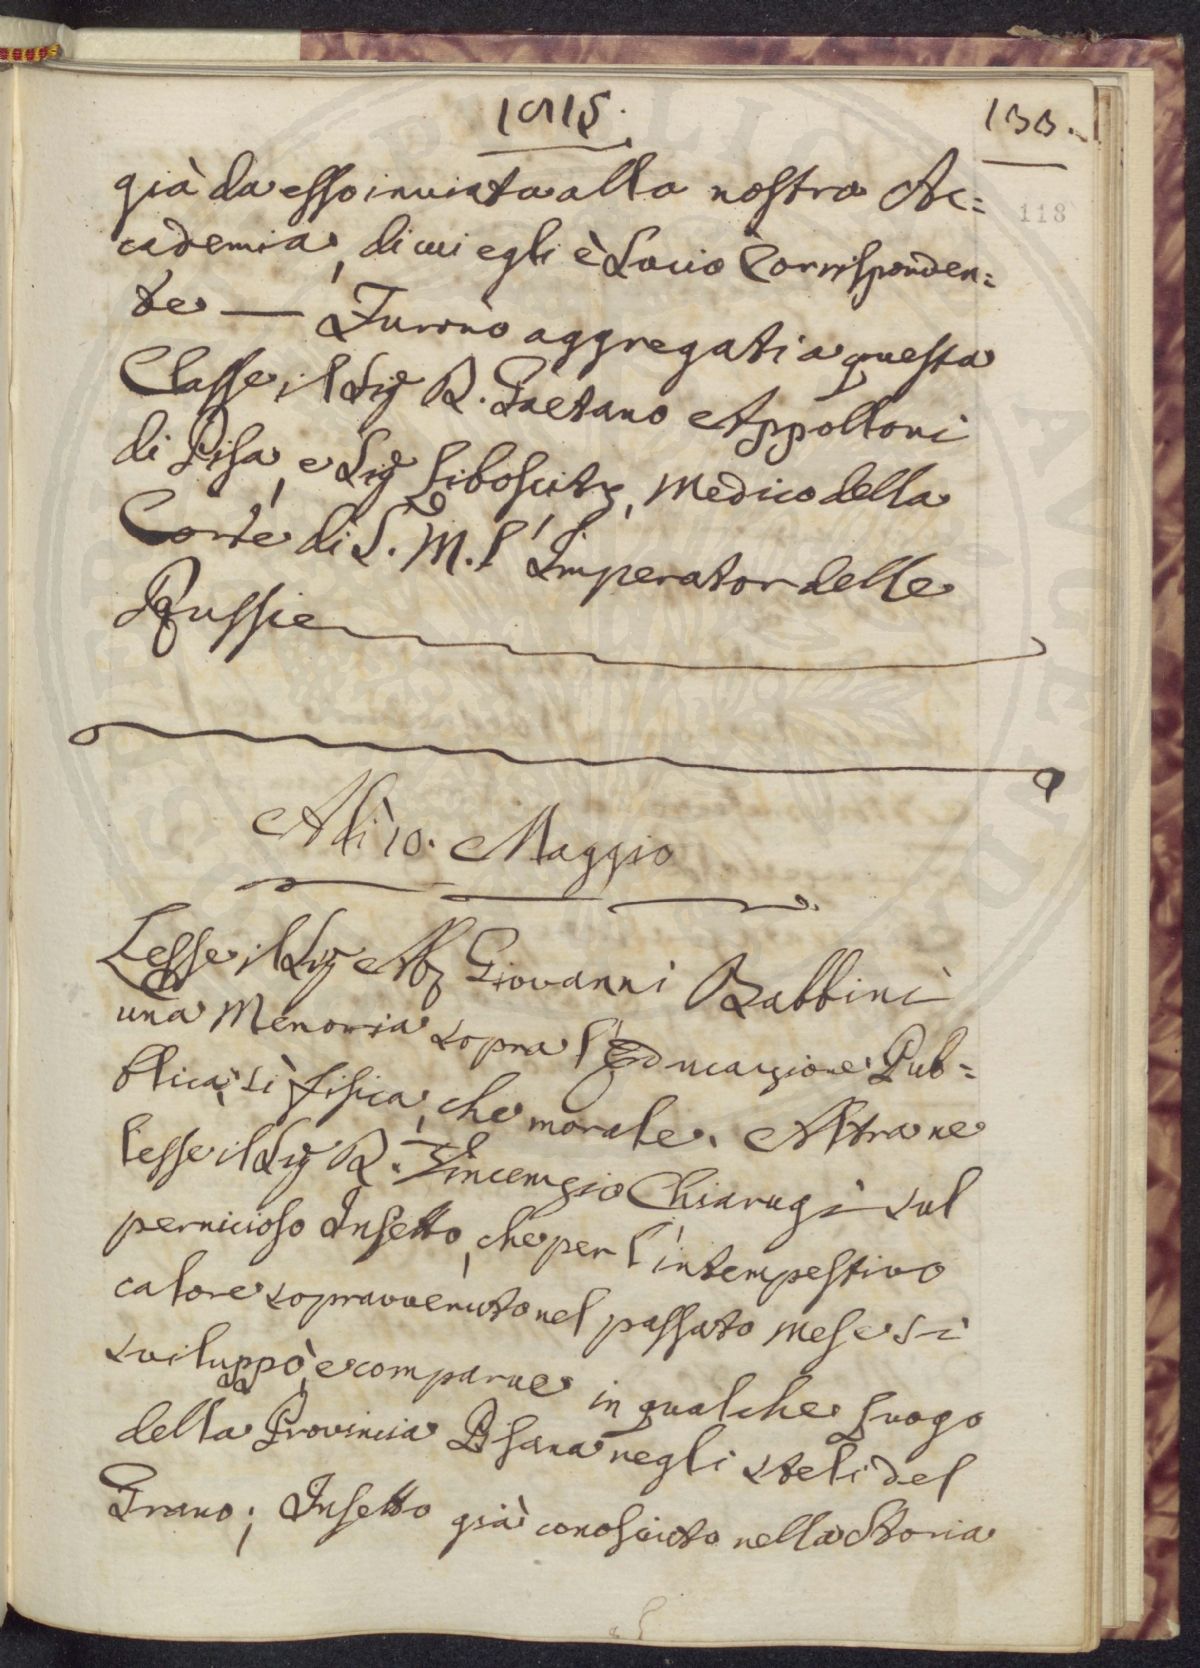 1815.
133.
118
già da esso inviata alla nostra Ac=
cademia, di cui egli è Socio Corrisponden=
te — Furono aggregati a questa
Classe il Sig D. Gaetano Appolloni
di Pisa, e Sig Liboscitz, Medico della
Corte di S. M. l'Imperator delle
Russie
A dì 10. Maggio
Lesse il Sig Ab Giovanni Babbini
una Memoria sopra l'Educazione Pub=
blica, sì fisica, che morale. Altra ne
lesse il Sig D. Vincenzio Chiarugi sul
pernicioso Insetto, che per l'intempestivo
calore sopravvenuto nel passato Mese si
sviluppò, e comparve in qualche Luogo
della Provincia Pisana negli steli del
Grano; Insetto già conosciuto nella Storia